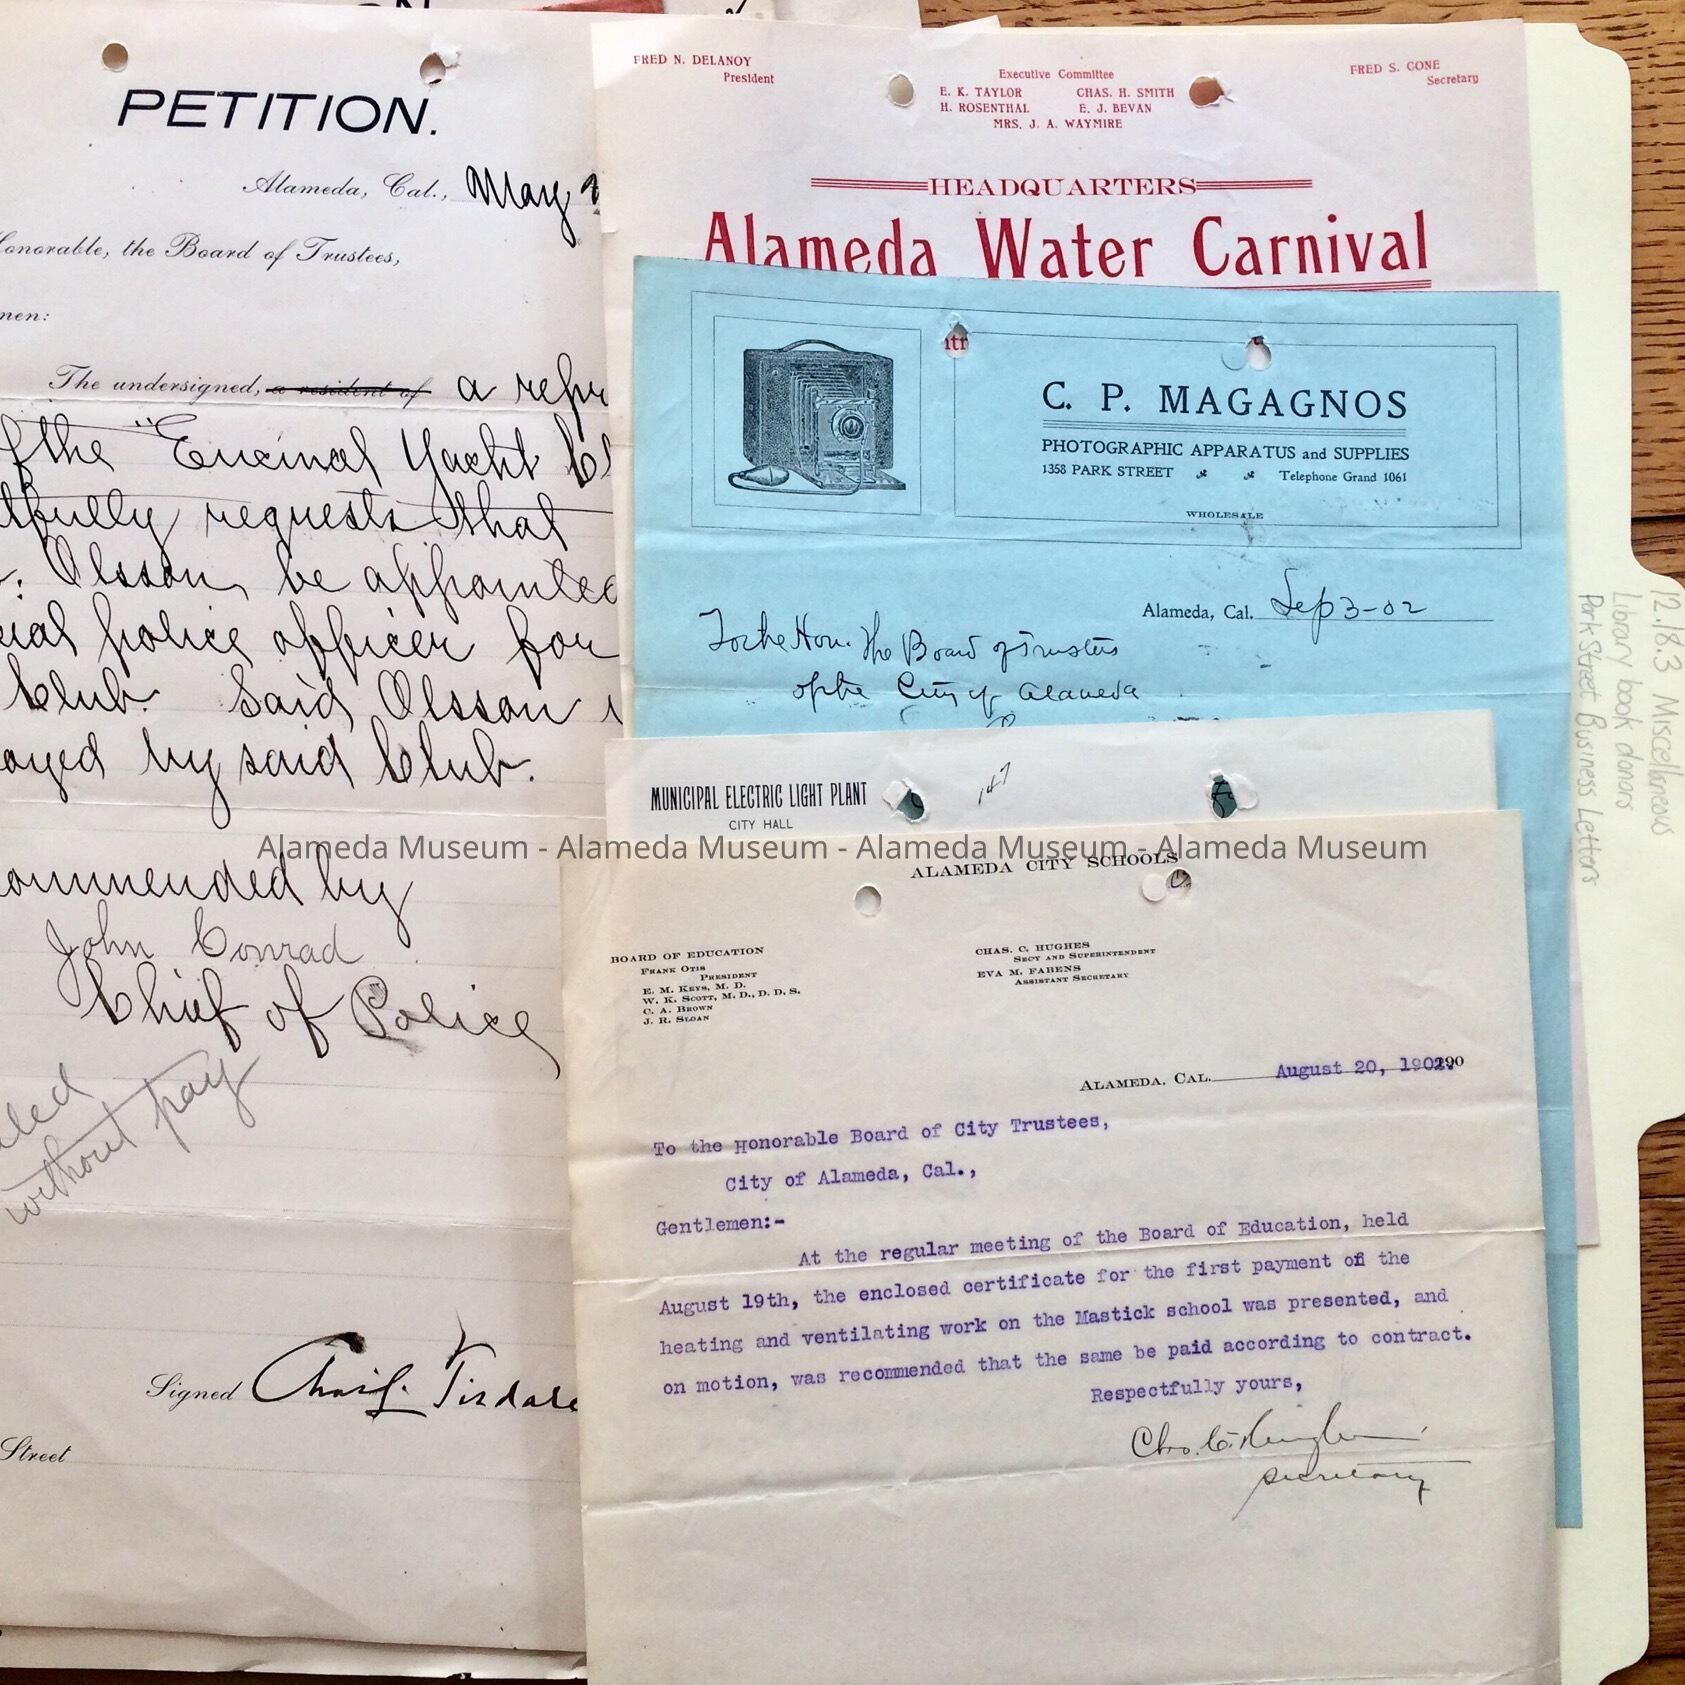 PETITION.
Alameda, Cal., May
Honorable, the Board of Trustees,
men:
The undersigned, a resident of a repr
of the "Encinal Yacht Cl
tfully requests that
Olsson, be appointed
cial police officer for
Club. Said Olsson
oyed by said Club.
commended by
John Conrad
Chief of Police
without pay
Signed Chas. L. Tisdale
Street
FRED N. DELANOY
President
Executive Committee
E. K. TAYLOR CHAS. H. SMITH
H. ROSENTHAL E. J. BEVAN
MRS. J. A. WAYMIRE
FRED S. CONE
Secretary
HEADQUARTERS
Alameda Water Carnival
C. P. MAGAGNOS
PHOTOGRAPHIC APPARATUS and SUPPLIES
1358 PARK STREET Telephone Grand 1061
WHOLESALE
Alameda, Cal. Sep 3-02
To the Hon. The Board of Trustees
of the City of Alameda
MUNICIPAL ELECTRIC LIGHT PLANT
CITY HALL
147
Alameda Museum - Alameda Museum - Alameda Museum - Alameda Museum
ALAMEDA CITY SCHOOLS
BOARD OF EDUCATION
FRANK OTIS
PRESIDENT
E. M. KEYS, M. D.
W. K. SCOTT, M. D., D. D. S.
C. A. BROWN
J. R. SLOAN
CHAS. C. HUGHES
SECY AND SUPERINTENDENT
EVA M. FABENS
ASSISTANT SECRETARY
ALAMEDA, CAL. August 20, 1902. 190
To the Honorable Board of City Trustees,
City of Alameda, Cal.,
Gentlemen:-
At the regular meeting of the Board of Education, held
August 19th, the enclosed certificate for the first payment on the
heating and ventilating work on the Mastick school was presented, and
on motion, was recommended that the same be paid according to contract.
Respectfully yours,
Chas. C. Hughes
Secretary
12.18.3 Miscellaneous
Library book donors
Park Street Business Letters